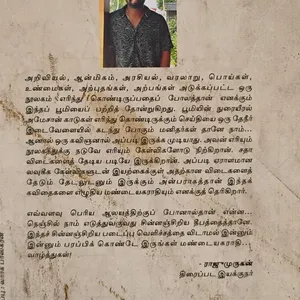 அறிவியல், ஆன்மிகம், அரசியல், வரலாறு, பொய்கள்,
உண்மைகள், அற்புதங்கள், அற்பங்கள் அடுக்கப்பட்ட ஒரு
நூலகம் எரிந்து கொண்டிருப்பதைப் போலத்தான் எனக்கும்
இந்தப் பூமியைப் பற்றித் தோன்றுகிறது. பூமியின் நுரையீரல்
அமேசான் காடுகள் எரிந்து கொண்டிருக்கும் செய்தியை ஒரு தேநீர்
இடைவேளையில் கடந்து போகும் மனிதர்கள் தானே நாம்...
ஆனால் ஒரு கவிஞனால் அப்படி இருக்க முடியாது. அவன் எரியும்
நூலகத்துக்கு நடுவே எரியும் கேள்விகளோடு நிற்கிறான். சதா
விடைகளைத் தேடிய படியே இருக்கிறான். அப்படி ஏராளமான
கேள்விகளுடன் இயற்கைக்குள் அதற்கான விடைகளைத்
தேடும் தேடலுடனும் இருக்கும் அன்பராகத்தான் இந்தக்
கவிதைகளை எழுதிய மண்டையகராதியும் எனக்குத் தெரிகிறார்.
எவ்வளவு பெரிய ஆலயத்திற்குப் போனால்தான் என்ன...
நெஞ்சில் நாம் எடுத்துவருவது சின்னஞ்சிறிய தீபத்தைத்தானே.
இந்தச் சின்னஞ்சிறிய படைப்பு வெளிச்சத்தை விடாமல் இன்னும்
இன்னும் பரப்பிக் கொண்டே இருங்கள் மண்டையகராதி...
வாழ்த்துகள்!
- ராஜுமுருகன்
திரைப்பட இயக்குநர்